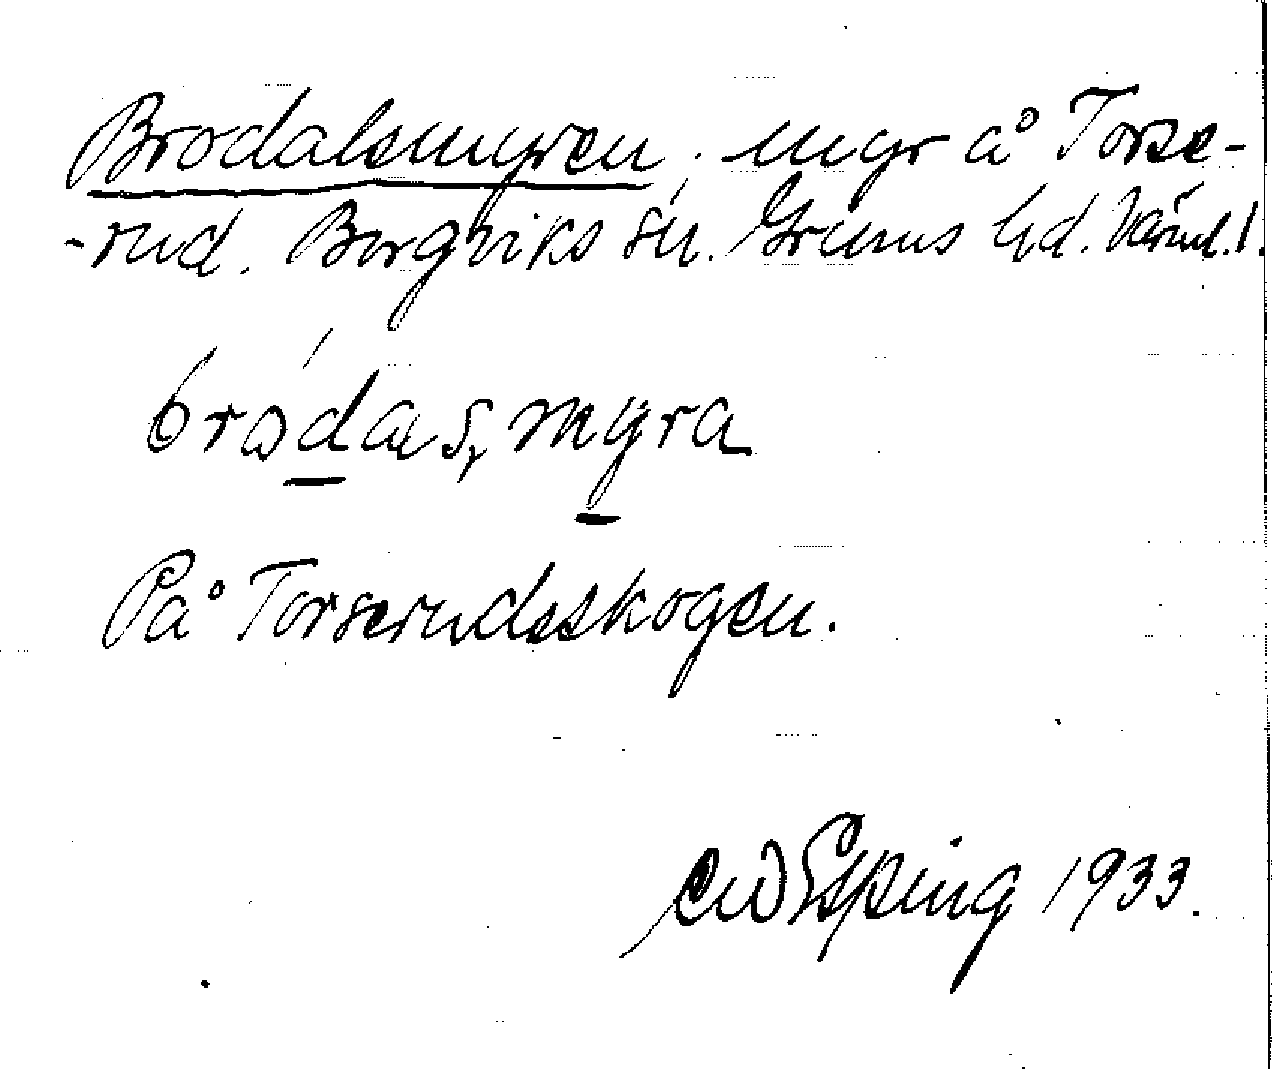 Brodalsmyren, myr å Torse-
-rud. Borgviks sn. Grums hd. Värml. l.
brodas, myra
På Torserudsskogen.
Esping 1933.